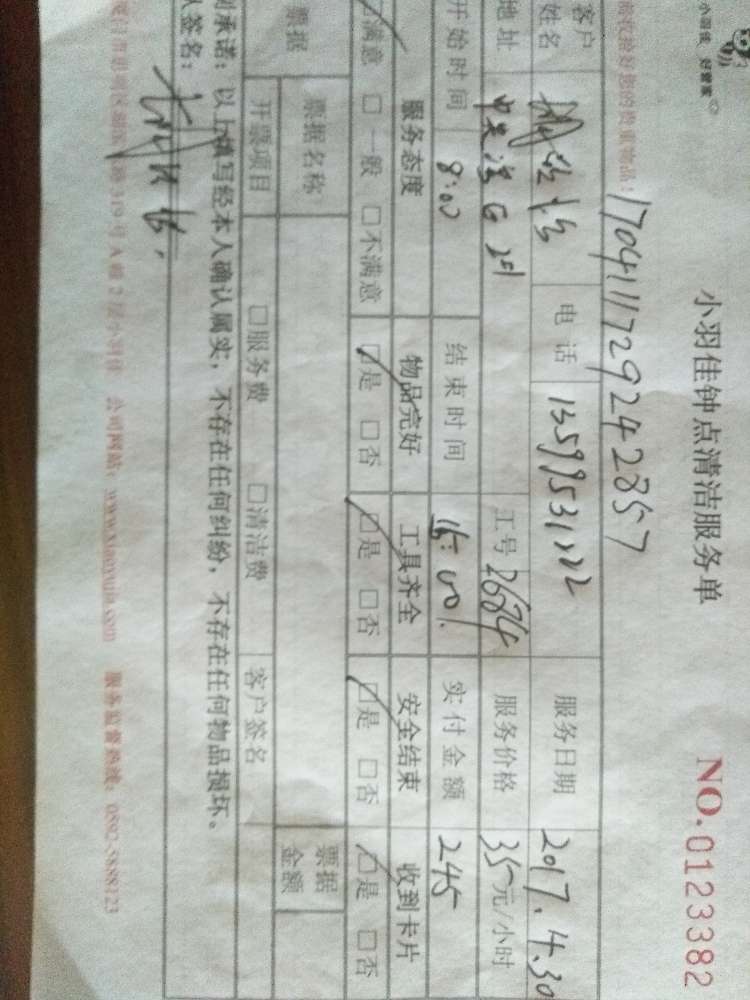 小羽佳 好管家
小羽佳钟点清洁服务单
NO.0123382
收拾好您的贵重物品：
1704111729242857
客户姓名 电话 13599531222 服务日期 2017.4.30
地址 工号 2684 服务价格 35元/小时
开始时间 8:00 结束时间 15:00 实付金额 245
服务态度 物品完好 工具齐全 安全结束 收到卡片
满意 □一般 □不满意 □是 □否 □是 □否 □是 □否 □是 □否
票据 票据名称 票据金额
开票项目 □服务费 □清洁费 客户签名
承诺：以上填写经本人确认属实，不存在任何纠纷，不存在任何物品损坏。
人签名：
319号A幢2层小羽佳 公司网站：www.xiaoyujia.com 服务监督热线：0592-5888123